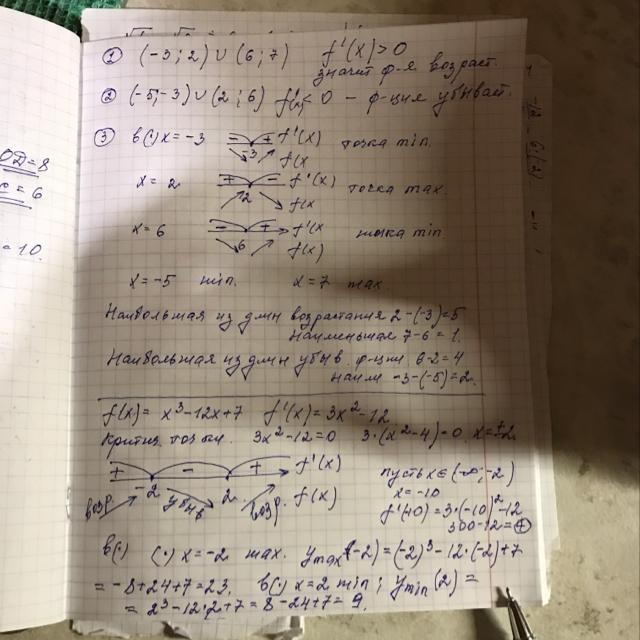 ① (-3; 2) ∪ (6; 7) f'(x) > 0
значит ф-я возраст.
② (-5; -3) ∪ (2; 6) f'(x) < 0 – ф-ция убывает.
③ в(·) x = -3 – + f'(x) точка min.
-3 f(x)
x = 2 + – f'(x) точка max.
2 f(x)
x = 6 – + f'(x) точка min
6 f(x)
x = -5 min. x = 7 max
Наибольшая из длин возрастания 2-(-3)=5
Наименьшая 7-6=1.
Наибольшая из длин убыв. ф-ции 6-2=4
наим -3-(-5)=2.
f(x) = x³-12x+7 f'(x) = 3x²-12
Критич. точки. 3x²-12=0 3·(x²-4)=0 x=±2
+ – + f'(x)
-2 2 f(x)
возр. убыв возр.
пусть x∈(-∞;-2)
x = -10
f'(-10)=3·(-10)²-12
300-12=⊕
в(·) (·) x=-2 max. ymax(-2)=(-2)³-12·(-2)+7
=-8+24+7=23. в(·) x=2 min; ymin(2)=
=2³-12·2+7=8-24+7=9.
=8
=6
=10